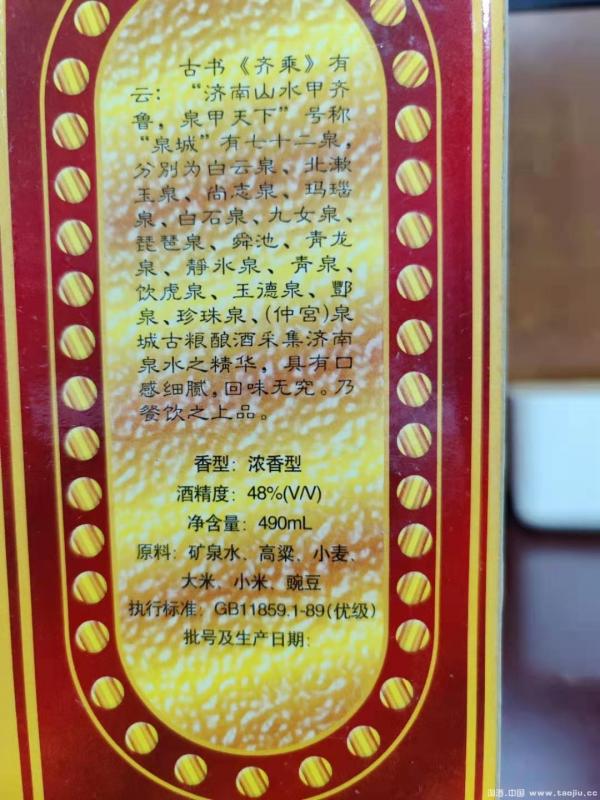 古书《齐乘》有
云：“济南山水甲齐
鲁，泉甲天下”号称
“泉城”有七十二泉，
分别为白云泉、北漱
玉泉、尚志泉、玛瑙
泉、白石泉、九女泉、
琵琶泉、舜池、青龙
泉、静氷泉、青泉、
饮虎泉、玉德泉、酆
泉、珍珠泉、(仲宫)泉
城古粮酿酒采集济南
泉水之精华，具有口
感细腻，回味无究。乃
餐饮之上品。
香型：浓香型
酒精度：48%(V/V)
净含量：490mL
原料：矿泉水、高粱、小麦、
大米、小米、豌豆
执行标准：GB11859.1-89(优级)
批号及生产日期:
淘酒.中国 www.taojiu.cc